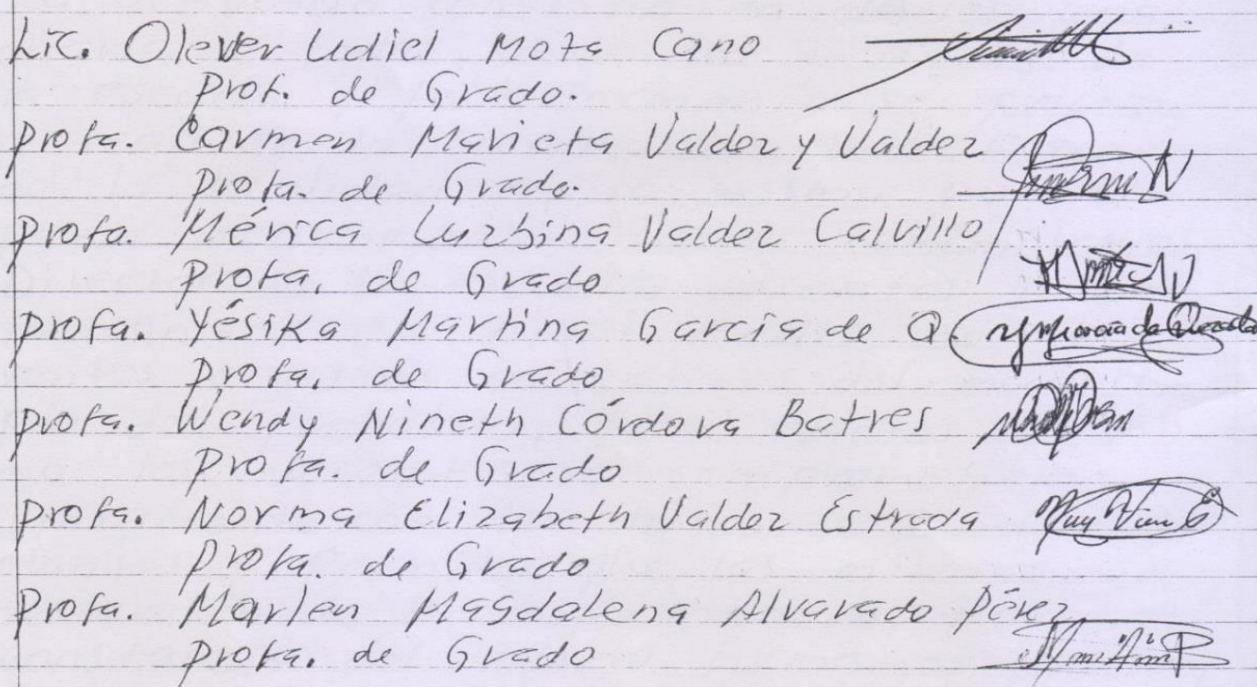 Lic. Olever Udiel Mota Cano
Prof. de Grado.
Profa. Carmen Marieta Valdez y Valdez
Profa. de Grado.
Profa. Mérica Luzbina Valdez Calvillo
Profa. de Grado
Profa. Yésika Martina García de Q
Profa. de Grado
Profa. Wendy Nineth Córdova Batres
Profa. de Grado
Profa. Norma Elizabeth Valdez Estrada
Profa. de Grado
Profa. Marlen Magdalena Alvarado Pérez
Profa. de Grado